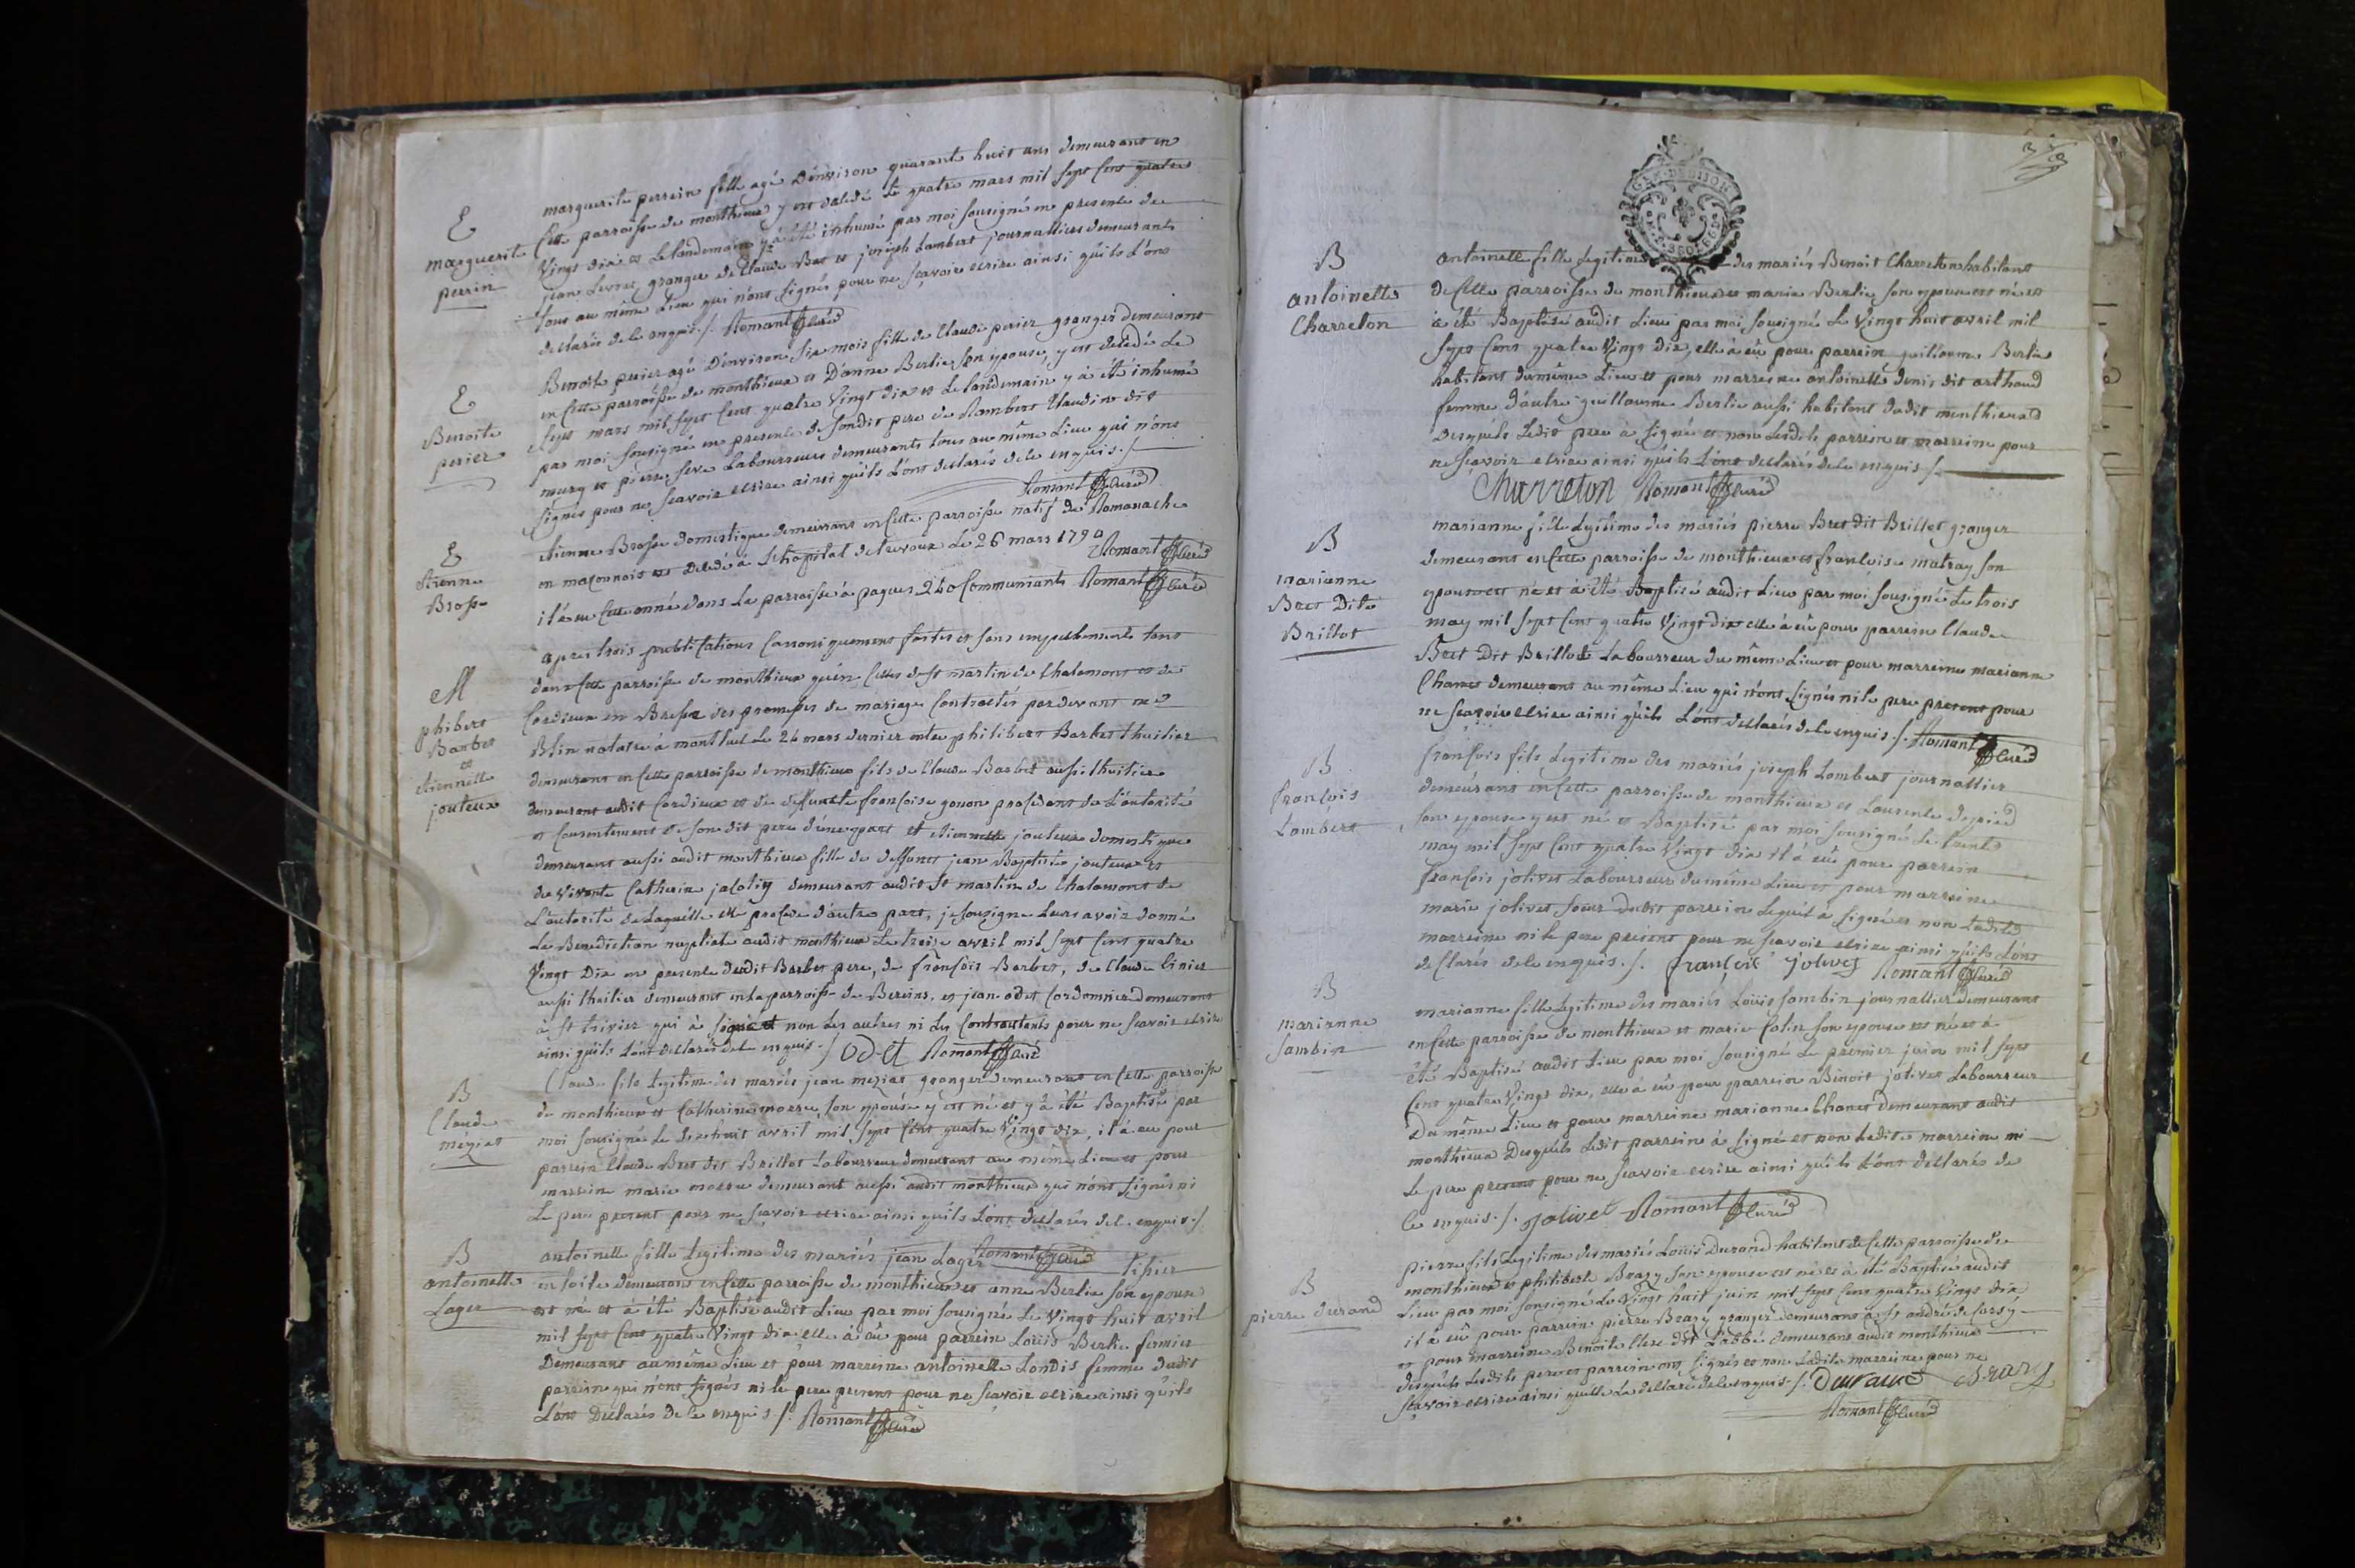 E
marguerite
perrin
marguerite perrein fille agé D'environ quarante huit ans demeurant en
Cette parroisse de monthieux y est décédé Le quatre mars mil sept Cent quatre
Vingt dix et Le landemain y à été inhumé par moi sousigné en presence de
jean Livret, granger de Claude Bret et joseph Lambert journallier demeurants
tous au même Lieu qui n'ont signés pour ne sçavoir ecrire ainsi quils L'ont
declarés de ce enquis ./. Romant Curé
E
Benoite
perier
Benoite perier agé D'environ six mois fille de Claude perier granger demeurant
en Cette parroisse de monthieux et D'anne Berlie son epouse, y est décédé Le
sept mars mil sept Cent quatre Vingt dix et Le landemain y à été inhumé
par moi sousigné en presence de sondit pere de Rambert Claudin dit
mury et pierre seve Labourreurs demeurants tous au même Lieu qui n'ont
signés pour ne sçavoir ecrire ainsi quils L'ont declarés de ce enquis ./.
Romant Curé
E
Etienne
Brosse
etienne Brosse domestique demeurant en Cette parroisse natif de Romanache
en maconnois est décédé à L'hopital de trevoux Le 26 mars 1790 Romant Curé
il á eu Cette année dans La parroisse à paques 240 Communiants Romant Curé
M
phibert
Barbet
et
etiennette
jouteux
apres trois publications Canoniquement faites et sans empechements tant
dans Cette parroisse de monthieux qu'en Celles de st martin de Chalamont et de
Cordieux en Bresse des promesses de mariage Contractés pardevant me
Blin notaire à montluel Le 24 mars dernier entre philibert Barbet thuilier
demeurant en Cette parroisse de monthieux fils de Claude Barbet aussi thuilier
demeurant audit Cordieux et de deffuncte françoise gonon procedant de L'autorité
et Consentement de son dit pere d'une part et etiennette jouteux domestique
demeurant aussi audit monthieux fille de deffunct jean Baptiste jouteux et
de vivante Catherine jacoliy demeurant audit st martin de Chalamont de
L'autorité de Laquelle elle procede d'autre part, je sousigne Leurs avoir donné
La Benediction nuptiale audit monthieux Le treize avril mil sept Cent quatre
Vingt Dix en presence dudit Barbet pere, de françois Barbet, de Claude Cinier
aussi thuilier demeurant en La parroisse de Bereins, et jean odet Cordonnier demeurant
à st trivier qui à signé et non Les autres ni Les Contractants pour ne sçavoir ecrire
ainsi quils L'ont declarés de ce enquis ./. Odet Romant Curé
B
Claude
méziat
Claude fils Legitime des mariés jean meziat granger demeurant en Cette parroisse
de monthieux et Catherine morre, son epouse y est né et y à été Baptisé par
moi sousigné Le dixhuit avril mil sept Cent quatre Vingt dix, il à eu pour
parrein Claude Bret dit Brillot Labourreur demeurant au même Lieu et pour
marreine marie morre demeurant aussi audit monthieux qui n'ont signés ni
Le pere present pour ne sçavoir ecrire ainsi quils L'ont declarés de ce enquis ./.
Romant Curé
B
antoinette
Lager
antoinette fille Legitime des mariés jean Lager tissier
en toile demeurant en Cette parroisse de monthieux et anne Berlie son epouse
est né et à été Baptisé audit Lieu par moi sousigné Le Vingt huit avril
mil sept Cent quatre Vingt dix elle à eû pour parrein Loüis Berlie fermier
Demeurant au même Lieu et pour marreine antoinette Londis femme dudit
parrein qui n'ont signés ni le pere present pour ne sçavoir ecrire ainsi quils
L'ont Declarés de ce enquis ./. Romant Curé
B
antoinette
Charreton
GEN. DE DIJON
antoinette fille Legitime des mariés Benoit Charreton habitant
de Cette parroisse de monthieux et marie Berlie son epouse est né et
à été Baptisé audit Lieu par moi sousigné Le Vingt huit avril mil
sept Cent quatre Vingt dix, elle à eû pour parrein guillaume Berlie
habitant du même Lieu et pour marreine antoinette denis dit arthaud
femme d'autre guillaume Berlie aussi habitant dudit monthieux
Desquels Ledit pere à signé et non Lesdits parrein et marreine pour
ne sçavoir ecrire ainsi quils L'ont declarés de ce enquis ./.
Charreton Romant Curé
B
marianne
Bret Dite
Brillot
marianne fille Legitime des mariés pierre Bret dit Brillot granger
demeurant en Cette parroisse de monthieux et françoise matray son
epouse est né et à été Baptisé audit Lieu par moi sousigné Le trois
may mil sept Cent quatre Vingt dix elle à eû pour parrein Claude
Bret Dit Brillot Labourreur du même Lieu et pour marreine marianne
Chanet demeurant au même Lieu qui n'ont signés ni le pere present pour
ne sçavoir ecrire ainsi quils L'ont declarés de ce enquis ./. Romant Curé
B
françois
Lambert
françois fils Legitime des mariés joseph Lambert journallier
demeurant en Cette parroisse de monthieux et Laurence depied
son epouse y est né et Baptisé par moi sousigné Le trente
may mil sept Cent quatre Vingt dix il à eû pour parrein
françois jolivet Labourreur du même Lieu et pour marreine
marie jolivet soeur dudit parrein Lequel à signé et non Ladite
marreine ni le pere present pour ne sçavoir ecrire ainsi quils L'ont
declarés de ce enquis ./. françois jolivet Romant Curé
B
marianne
sambin
marianne fille Legitime des mariés Loüis sambin journallier demeurant
en Cette parroisse de monthieux et marie Colin son epouse est né et à
été Baptisé audit Lieu par moi sousigné Le premier juin mil sept
Cent quatre Vingt dix, elle à eû pour parrein Benoit jolivet Labourreur
Du même Lieu et pour marreine marianne Chanet demeurant audit
monthieux Desquels Ledit parrein à signé et non Ladite marreine ni
Le pere present pour ne sçavoir ecrire ainsi quils L'ont déclarés de
Ce enquis ./. jolivet Romant Curé
B
pierre durand
pierre fils Legitime des mariés Loüis Durand habitant de Cette parroisse de
monthieux et philiberte Brazy son epouse est né et à été Baptisé audit
Lieu par moi sousigné Le Vingt huit juin mil sept Cent quatre Vingt dix
il à eû pour parrein pierre Brazy granger demeurant à st andré de Corsy
et pour marreine Benoite Clere dit Labbé demeurant audit monthieux
desquels Lesdits pere et parrein ont signés et non Ladite marreine pour ne
sçavoir ecrire ainsi quelle La declaré de ce enquis ./. Durand Brazy
Romant Curé